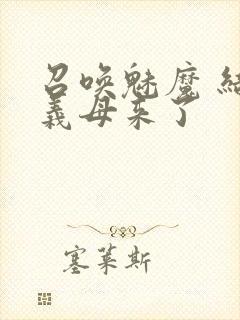 召唤魅魔 结
义母来了
塞莱斯